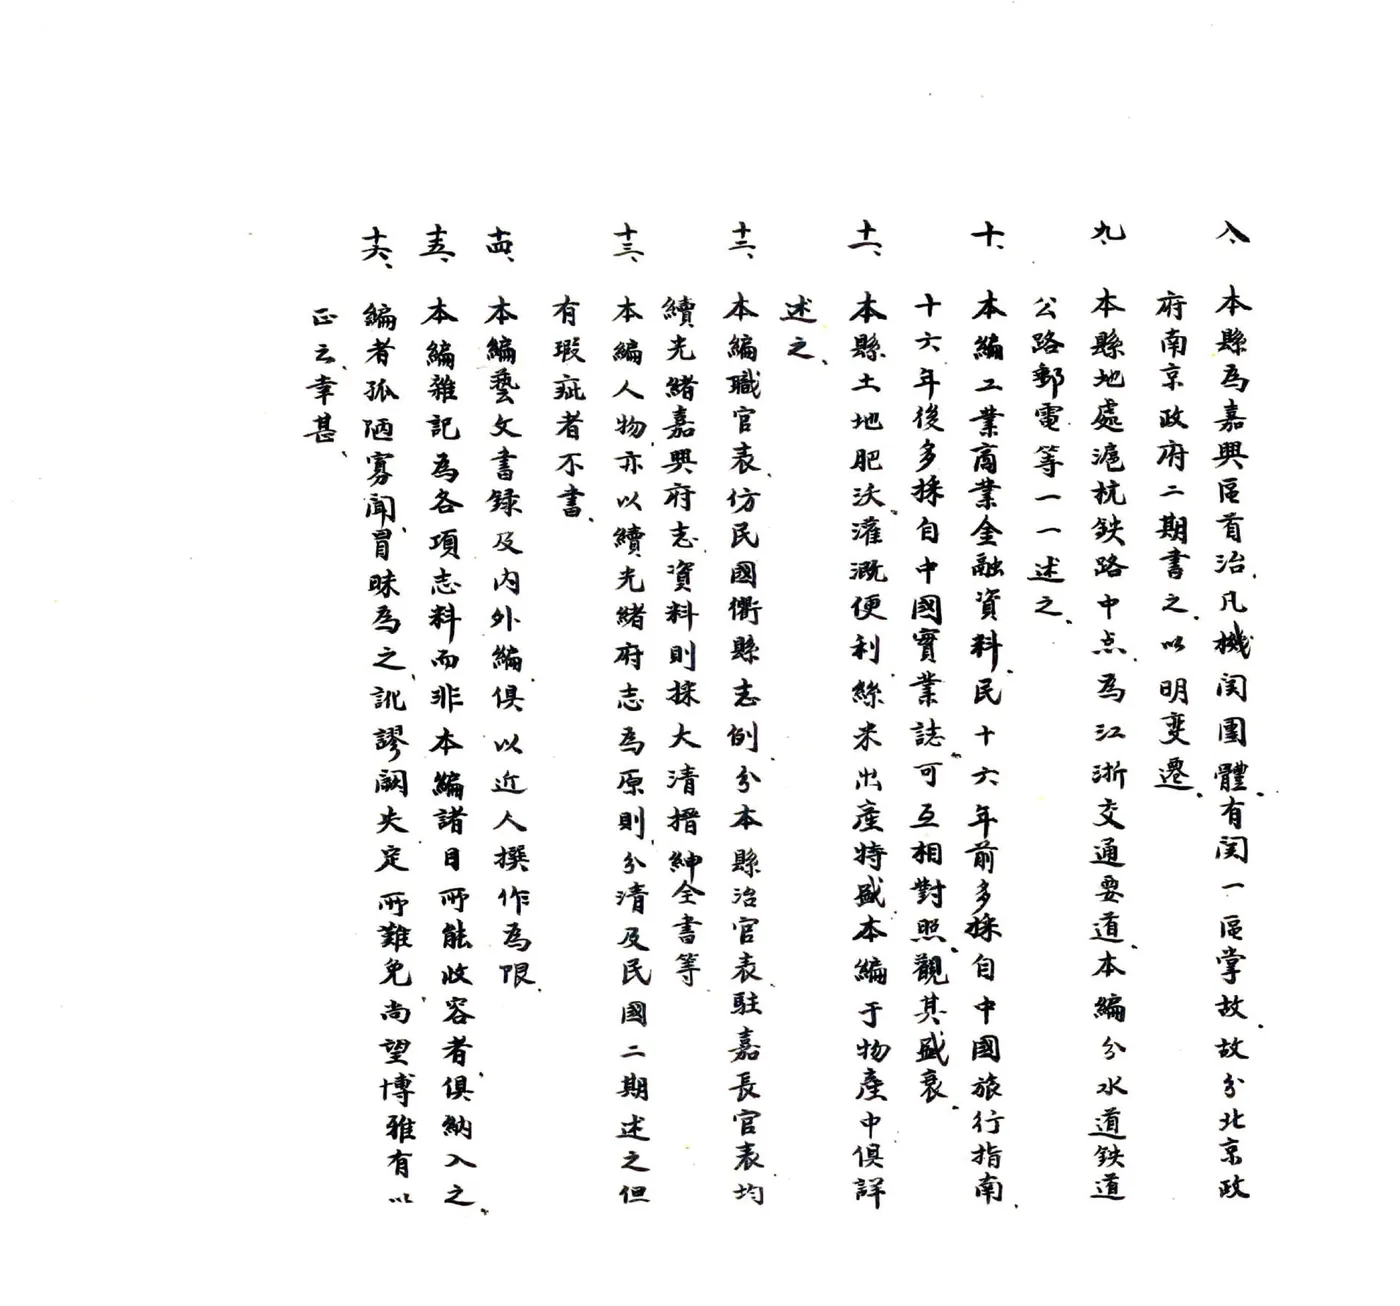 八、本縣為嘉興區首治、凡機関團體、有関一區掌故、故分北京政
府南京政府二期書之、以明变遷、
九、本縣地處滬杭鉄路中点、為江浙交通要道、本編分水道鉄道
公路郵電等一一述之、
十、本編工業商業金融資料、民十六年前多採自中國旅行指南、
十六年後多採自中國實業誌、可互相對照、觀其盛衰、
十一、本縣土地肥沃、灌溉便利、絲米出產特盛、本編于物產中俱詳
述之、
十二、本編職官表、仿民國衢縣志例、分本縣治官表、駐嘉長官表、均
續光緒嘉興府志、資料則採大清搢紳全書等
十三、本編人物、亦以續光緒府志為原則、分清及民國二期述之、但
有瑕疵者不書、
十四、本編藝文書録及内外編、俱以近人撰作為限、
十五、本編雜記為各項志料而非本編諸目所能收容者、俱納入之、
十六、編者孤陋寡聞、冒昧為之、訛謬闕失定所難免、尚望博雅有以
正之、幸甚、